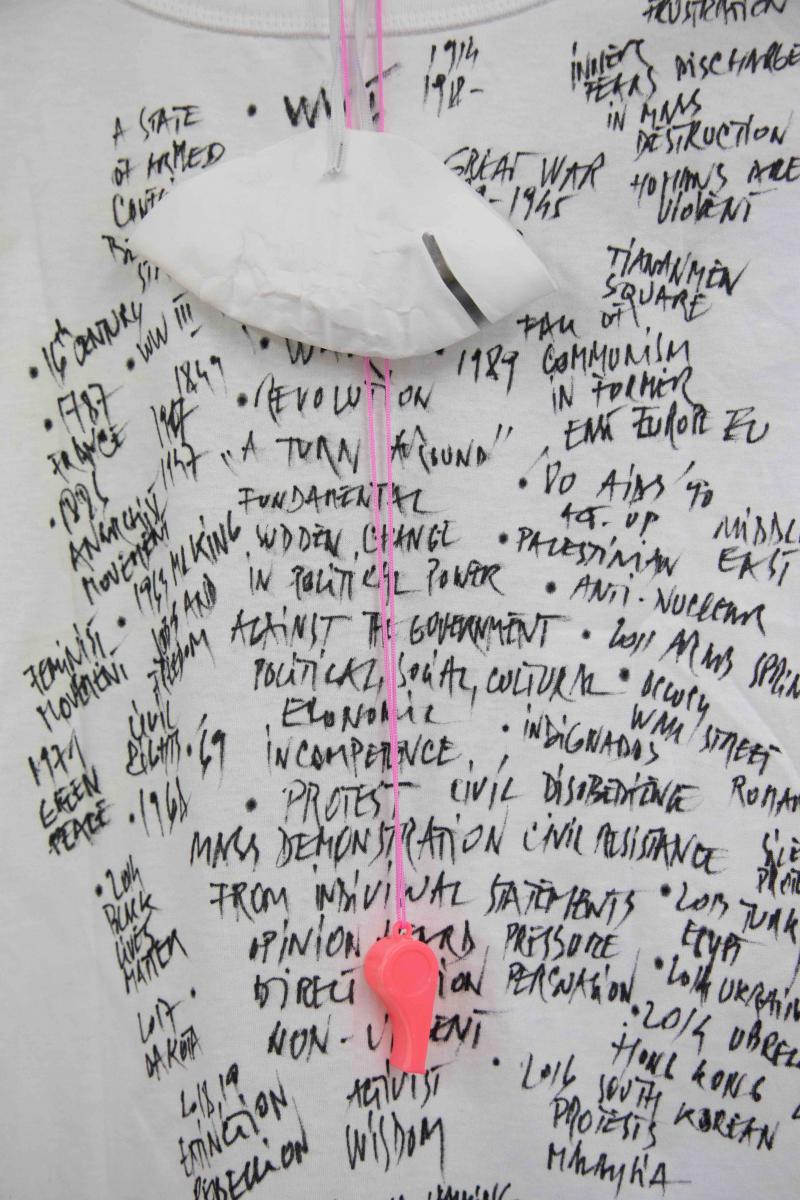 FRUSTRATION
1914
1918-
INNERS
FEARS DISCHARGE
IN MASS
DESTRUCTION
HUMANS ARE
VIOLENT
A STATE
OF ARMED
• WW I
GREAT WAR
-1945
TIANANMEN
SQUARE
• 16th CENTURY
• WW III
• 1787
FRANCE
1849
FALL OF
1989 COMMUNISM
IN FORMER
EAST EUROPE EU
• REVOLUTION
"A TURN AROUND"
FUNDAMENTAL
CHANGE
IN POLITICAL POWER
AGAINST THE GOVERNMENT
POLITICAL, SOCIAL, CULTURAL
ECONOMIC
INCOMPETENCE,
ANARCHIST
MOVEMENT
• 1963 ML KING
JOBS AND
FREEDOM
FEMINIST •
MOVEMENT
CIVIL
RIGHTS • '69
1971
GREEN
PEACE
• 1968
ACT-UP
• PALESTINIAN
MIDDLE
EAST
• ANTI-NUCLEAR
• 2011 ARAB SPRIN
• OCCUPY
WALL STREET
• INDIGNADOS
• PROTEST CIVIL DISOBEDIENCE
MASS DEMONSTRATION CIVIL RESISTANCE
FROM INDIVIDUAL STATEMENTS
OPINION HEARD PRESSURE
PERSUASION
NON-VIOLENT
ACTIVIST
WISDOM
• 2014
BLACK
LIVES
MATTER
2017 •
DAKOTA
2018,19
EXTINCTION
REBELLION
• 2013 TURK
EGYPT
• 2014 UKRAIN
• 2014 UBREL
HONG KONG
• 2016 SOUTH KOREAN
PROTESTS
MALAYSIA